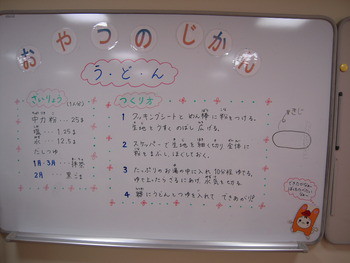 おやつのじかん
う・ど・ん
ざいりょう (1人分)
中力粉・・・25g
塩・・・1.25g
水・・・12.5g
だしつゆ
1月・3月・・・抹茶
2月・・・黒ごま
つくり方
1 クッキングシートとめん棒に粉をつける。
生地をうすくのばし広げる。
2 スケッパーで生地を細く切り全体に
粉をまぶし、ほぐしておく。
3 たっぷりのお湯の中に入れ10分程ゆでる。
ゆで上がったらざるにあげ、水気を切る。
4 器にうどんとつゆを入れてできあがり
きじ